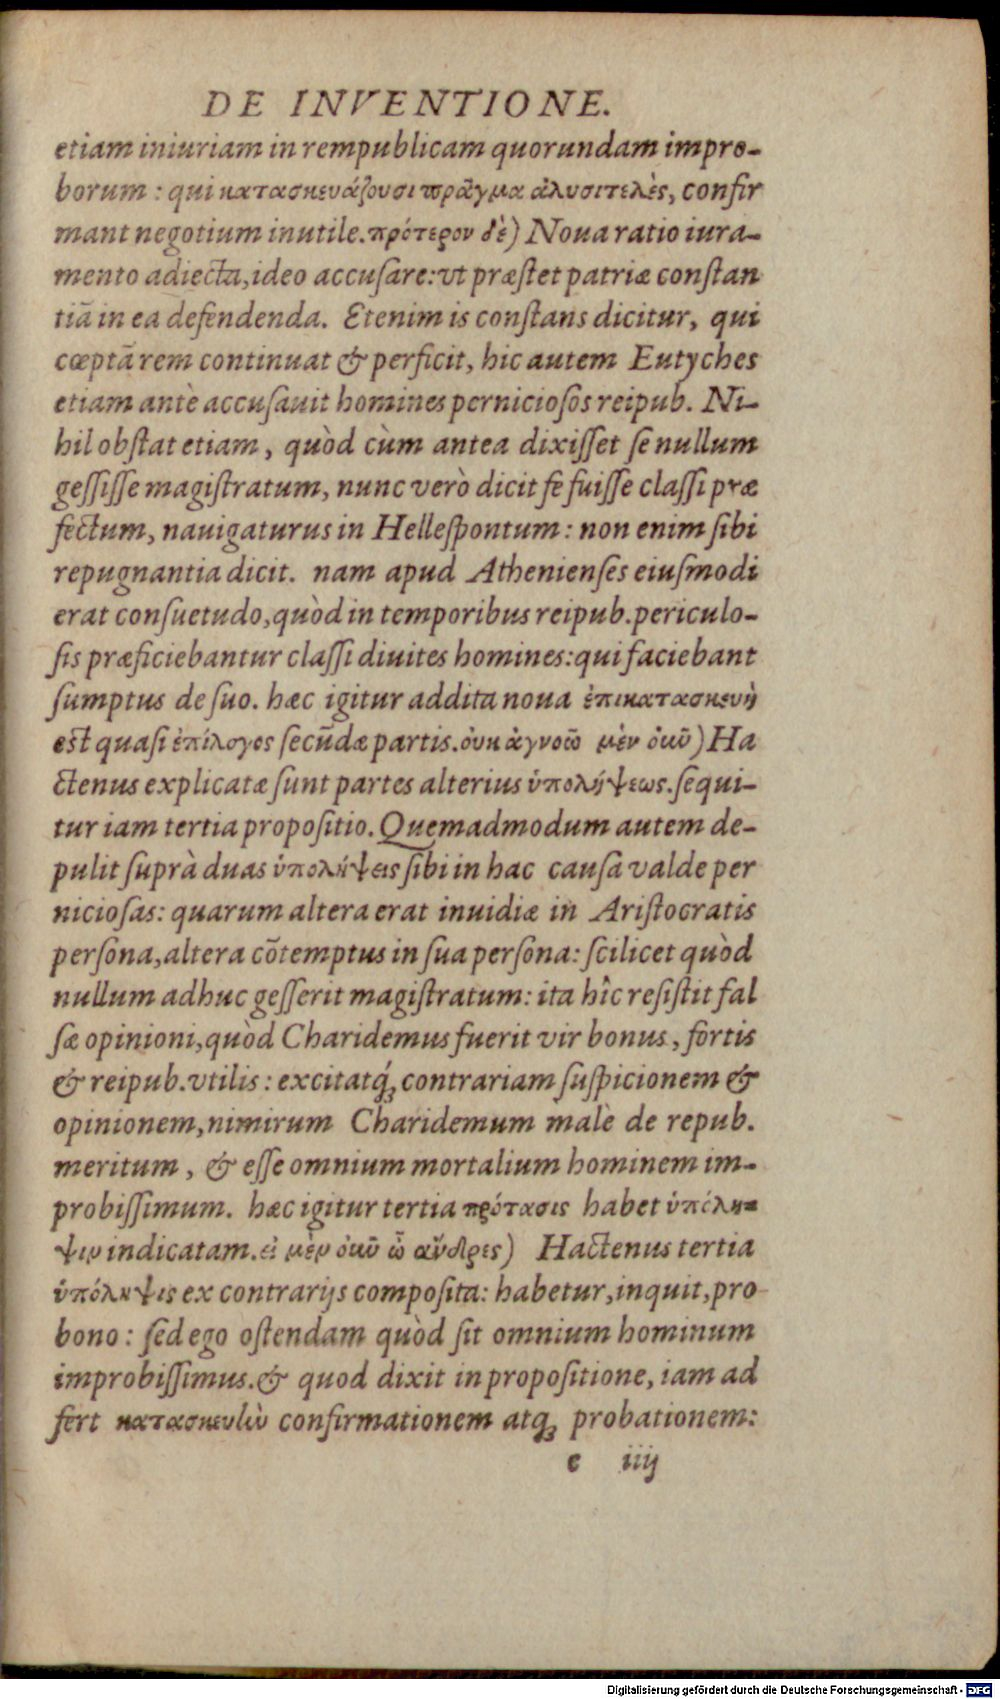 DE INVENTIONE.
etiam iniuriam in rempublicam quorundam impro-
borum: qui κατασκευάζουσι πρᾶγμα ἀλυσιτελὲς, confir
mant negotium inutile. πρότερον δὲ) Noua ratio iura-
mento adiecta, ideo accusare: vt præstet patriæ constan
tiã in ea defendenda. Etenim is constans dicitur, qui
cœptã rem continuat & perficit, hic autem Eutyches
etiam antè accusauit homines perniciosos reipub. Ni-
hil obstat etiam, quòd cùm antea dixisset se nullum
gessisse magistratum, nunc verò dicit se fuisse classi præ
fectum, nauigaturus in Hellespontum: non enim sibi
repugnantia dicit. nam apud Athenienses eiusmodi
erat consuetudo, quòd in temporibus reipub. periculo-
sis præficiebantur classi diuites homines: qui faciebant
sumptus de suo. hæc igitur addita noua ἐπικατασκευὴ
est quasi ἐπίλογος secũdæ partis. οὐκ ἀγνοῶ μὲν οὖν) Ha
ctenus explicatæ sunt partes alterius ὑπολήψεως. sequi-
tur iam tertia propositio. Quemadmodum autem de-
pulit suprà duas ὑπολήψεις sibi in hac causa valde per
niciosas: quarum altera erat inuidiæ in Aristocratis
persona, altera cõtemptus in sua persona: scilicet quòd
nullum adhuc gesserit magistratum: ita hîc resistit fal
sæ opinioni, quòd Charidemus fuerit vir bonus, fortis
& reipub. vtilis: excitatq́; contrariam suspicionem &
opinionem, nimirum Charidemum malè de repub.
meritum, & esse omnium mortalium hominem im-
probissimum. hæc igitur tertia πρότασις habet ὑπόλη-
ψιν indicatam. εἰ μὲν οὖν ὦ ἄνδρες) Hactenus tertia
ὑπόληψις ex contrarijs composita: habetur, inquit, pro
bono: sed ego ostendam quòd sit omnium hominum
improbissimus. & quod dixit in propositione, iam ad
fert κατασκευὴν confirmationem atq; probationem:
e iiij
Digitalisierung gefördert durch die Deutsche Forschungsgemeinschaft - DFG